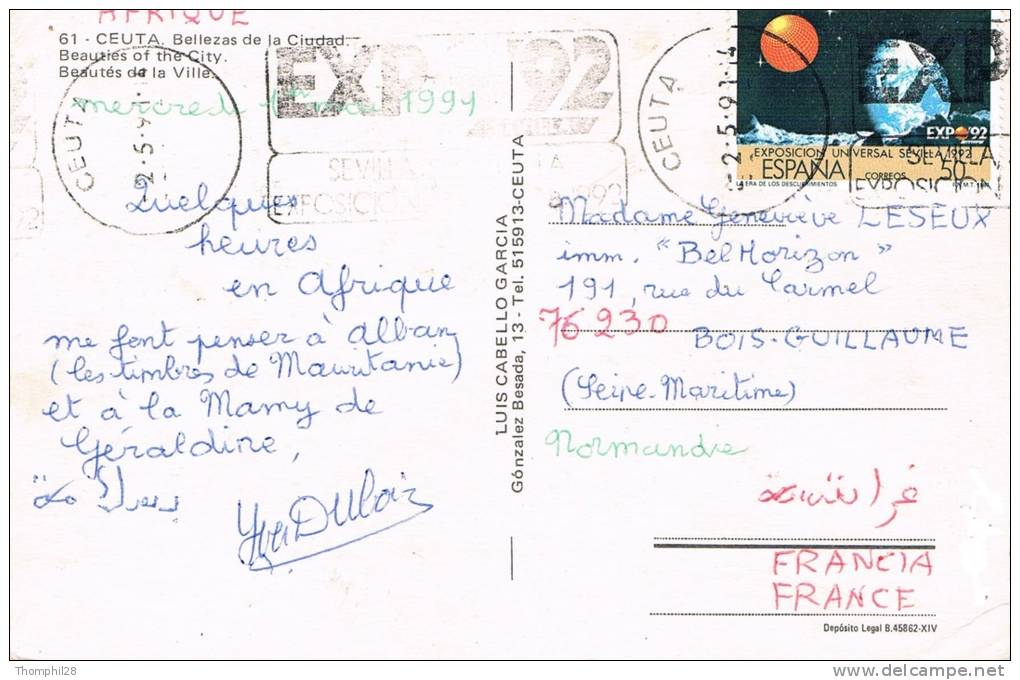 AFRIQUE
61 - CEUTA. Bellezas de la Ciudad.
Beauties of the City.
Beautés de la Ville.
mercredi 1er mai 1991
Quelques
heures
en Afrique
me font penser à Alban
(les timbres de Mauritanie)
et à la Mamy de
Géraldine,
Yves DUBOIS
LUIS CABELLO GARCIA
Gónzalez Besada, 13 - Tel. 515913-CEUTA
CEUTA
2-5-91
EXPO '92
SEVILLA
EXPOSICION
1992
CEUTA
2-5-91-14
EXP
SEVILLA
EXPOSICION
EXPO'92
EXPOSICION UNIVERSAL SEVILLA 1992
ESPAÑA
CORREOS
50
LA ERA DE LOS DESCUBRIMIENTOS
Madame Geneviève LESEUX
imm. "Bel Horizon"
191, rue du Carmel
76230 BOIS-GUILLAUME
(Seine-Maritime)
Normandie
FRANCIA
FRANCE
Depósito Legal B.45862-XIV
Thomphil28
www.delcampe.net